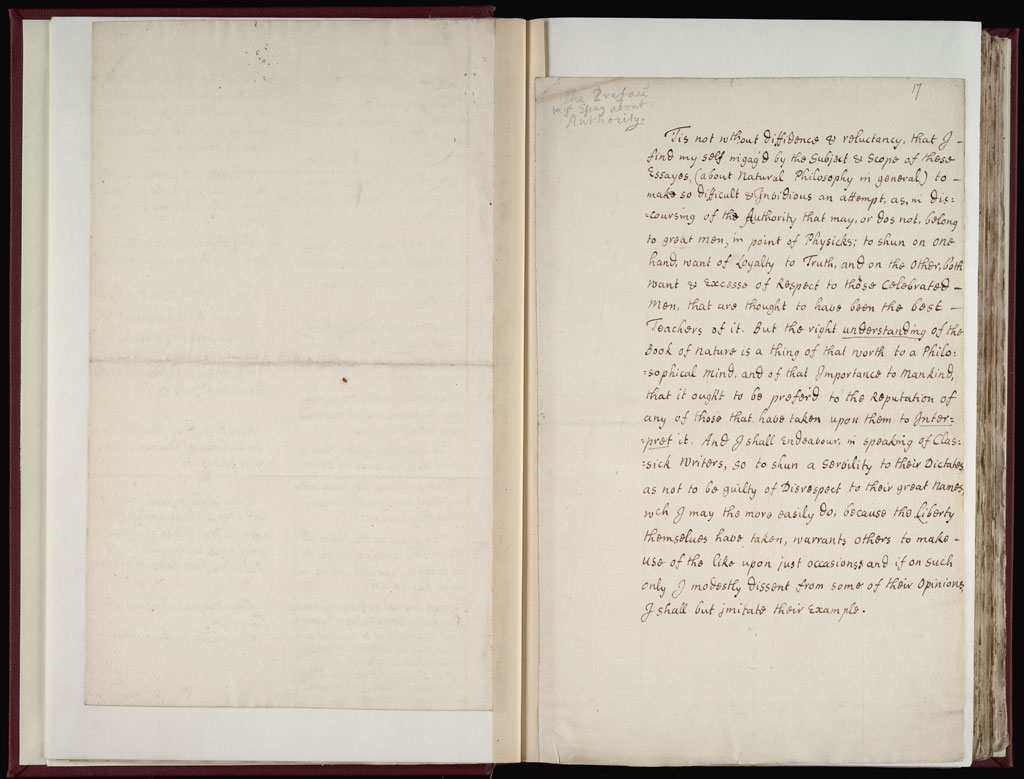 17
The Preface
to ye Essay about
Authority.
Tis not wthout diffidence & reluctancy, that I -
find my self ingag'd by the Subject & Scope of these
Essayes, (about Natural Philosophy in general) to -
make so difficult & Invidious an attempt, as, in dis:
:coursing of the Authority that may, or dos not, belong
to great men, in point of Physicks; to shun on one
hand, want of Loyalty to Truth, and on the Other, both
want & Excesse of Respect to those Celebrated -
Men, that are thought to have been the best -
Teachers of it. But the right understanding of the
Book of Nature is a thing of that worth to a Philo:
:sophical mind, and of that Importance to Mankind,
that it ought to be prefer'd to the Reputation of
any of those that have taken upon them to Inter:
:pret it. And I shall Endeavour, in speaking of Clas:
:sick Writers, so to shun a Servility to their Dictates,
as not to be guilty of Disrespect to their great Names,
wch I may the more easily do, because the Liberty
themselves have taken, warrants others to make -
use of the like upon just occasions: and if on such
only I modestly dissent from some of their Opinions,
I shall but imitate their Example.